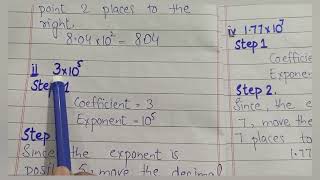 point 2 places to the
right.
8.04×10² = 804
ii 3×10⁵
Step 1
Coefficient = 3
Exponent = 10⁵
Step
Since the exponent is
5, move the decimal
iv 1.77×10⁷
Step 1
Coeffici
Exponen
Step 2.
Since, the e
7, move the
7 places to
1.77